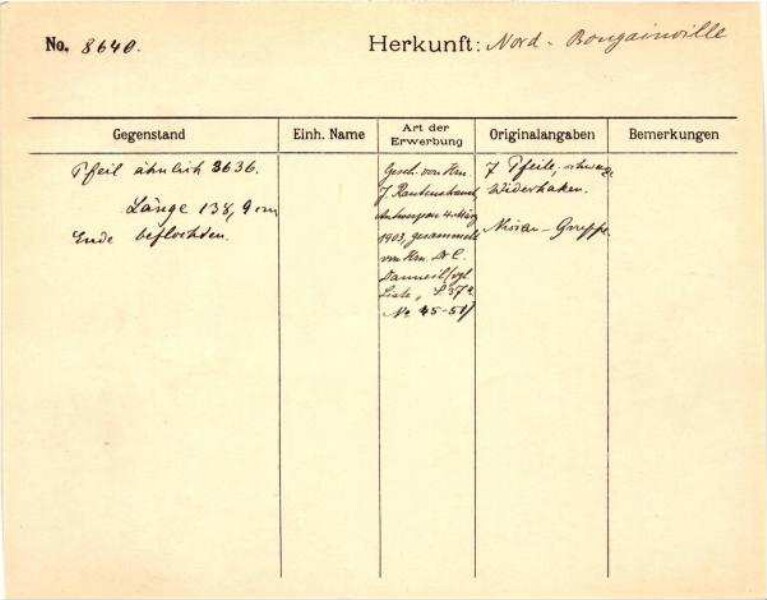 No. 8640.
Herkunft: Nord - Bougainville
Gegenstand
Einh. Name
Art der Erwerbung
Originalangaben
Bemerkungen
Pfeil ähnlich 3636.
Länge 138,9 cm
Ende beflochten.
Gesch. von Hrn.
J.
Antwerpen 4. März
1903, gesammelt
von Hrn. Dr C.
Danneil (vgl.
Liste,
No 45-51)
7 Pfeile, schwarze
Widerhaken.
Nissan - Gruppe.